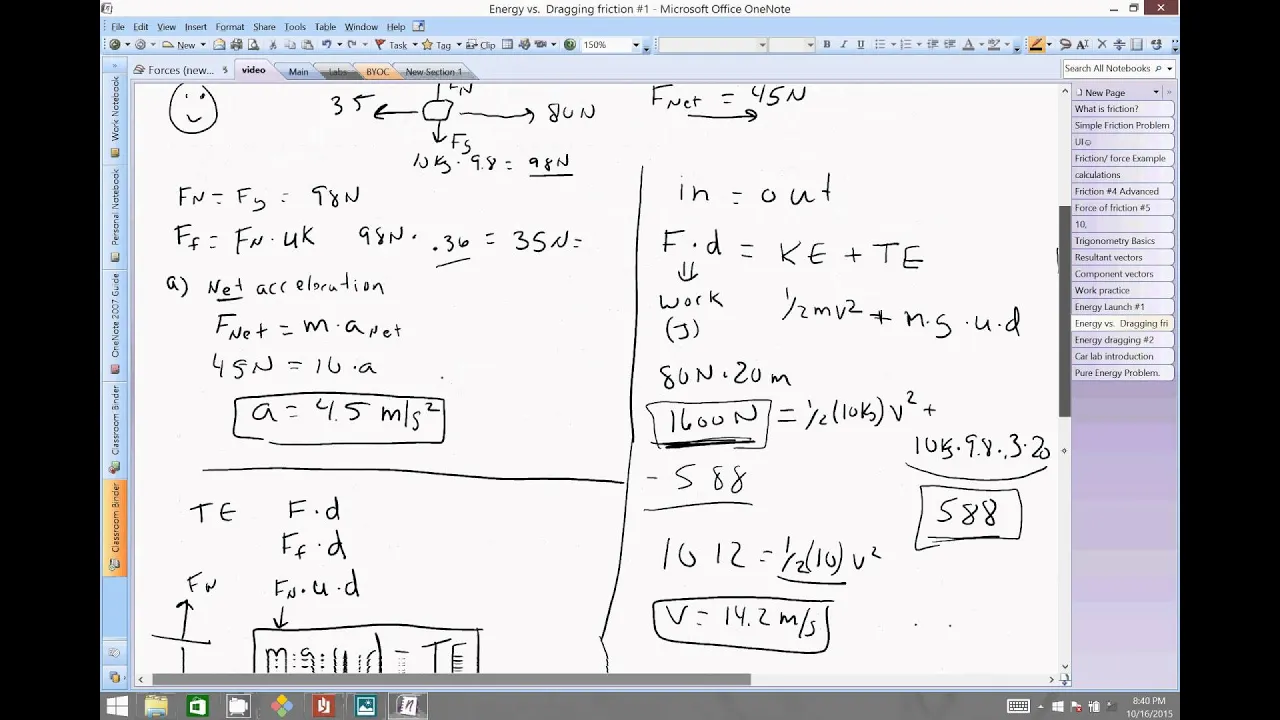 Energy vs. Dragging friction #1 - Microsoft Office OneNote
File Edit View Insert Format Share Tools Table Window Help
New Task Tag Clip 150% B I U
Forces (new... video Main Labs BYOC New Section 1
Search All Notebooks
New Page
What is friction?
Simple Friction Problem
UI☺
Friction/ force Example
calculations
Friction #4 Advanced
Force of friction #5
10,
Trigonometry Basics
Resultant vectors
Component vectors
Work practice
Energy Launch #1
Energy vs. Dragging fri
Energy dragging #2
Car lab introduction
Pure Energy Problem.
Work Notebook
Personal Notebook
OneNote 2007 Guide
Classroom Binder
Classroom Binder
FN
35 80N
Fg
10Kg·9.8 = 98N
FN = Fg = 98N
Ff = FN·uK 98N· .36 = 35N=
a) Net acceloration
FNet = m·aNet
45N = 10·a
a = 4.5 m/s²
TE F·d
Ff·d
FN·u·d
FN
m·g·u·d = TE
FNet = 45N
in = out
F·d = KE + TE
work
(J)
1/2mv² + m·g·u·d
80N·20m
1600N = 1/2(10Kg)v² +
10Kg·9.8·.3·20
- 588
588
1012 = 1/2(10)v²
v = 14.2 m/s
8:40 PM
10/16/2015